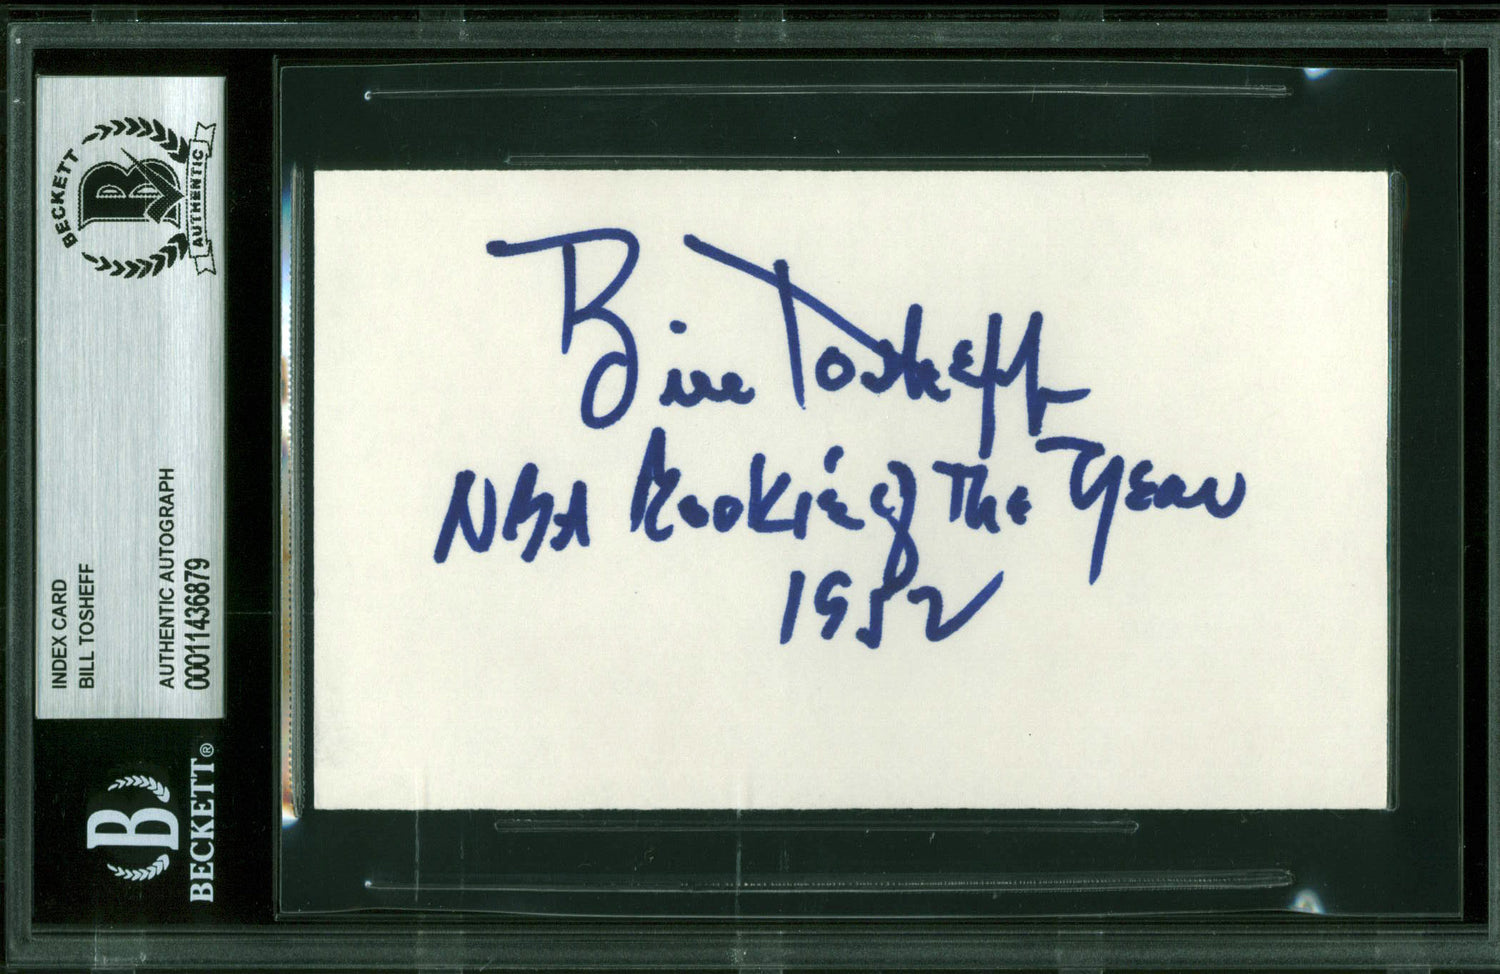 BECKETT
B
AUTHENTIC
INDEX CARD
BILL TOSHEFF
AUTHENTIC AUTOGRAPH
00011436879
B
BECKETT®
Bill Tosheff
NBA Rookie of The Year
1952